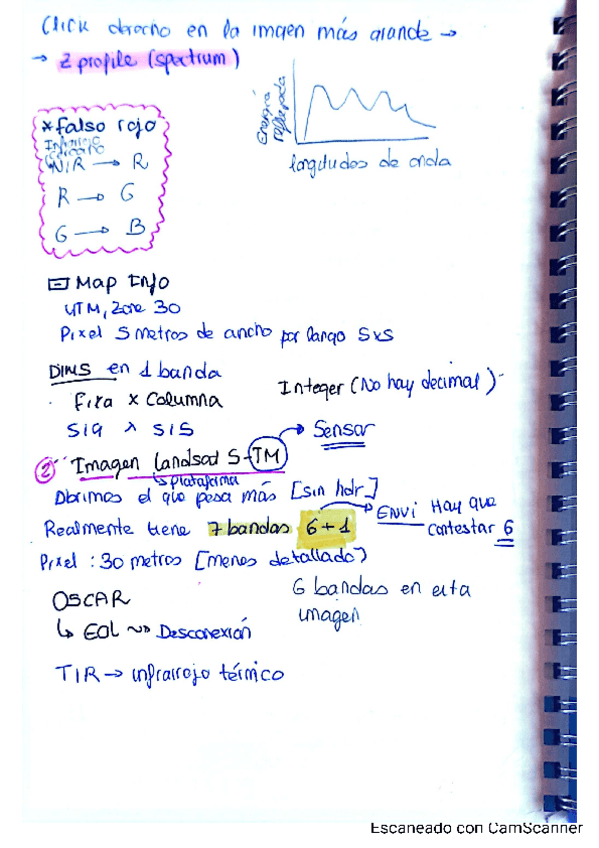 Click derecho en la imagen más grande →
→ Z profile (spectrum)
Energía reflejada
longitudes de onda
* Falso rojo
Infrarrojo cercano
NIR → R
R → G
G → B
Map Info
UTM, Zone 30
Pixel 5 metros de ancho por largo 5x5
DIMS en 1 banda
Fila x Columna
Integer (No hay decimal)
→ Sensor
② Imagen Landsad 5-TM
↳ plataforma
Abrimos el que pesa más [sin hdr]
Realmente tiene 7 bandas 6+1
→ ENVI Hay que contestar 6
Pixel : 30 metros [menos detallado)
6 bandas en esta imagen
OSCAR
↳ EOL ~> Desconexión
TIR → infrarrojo térmico
Escaneado con CamScanner